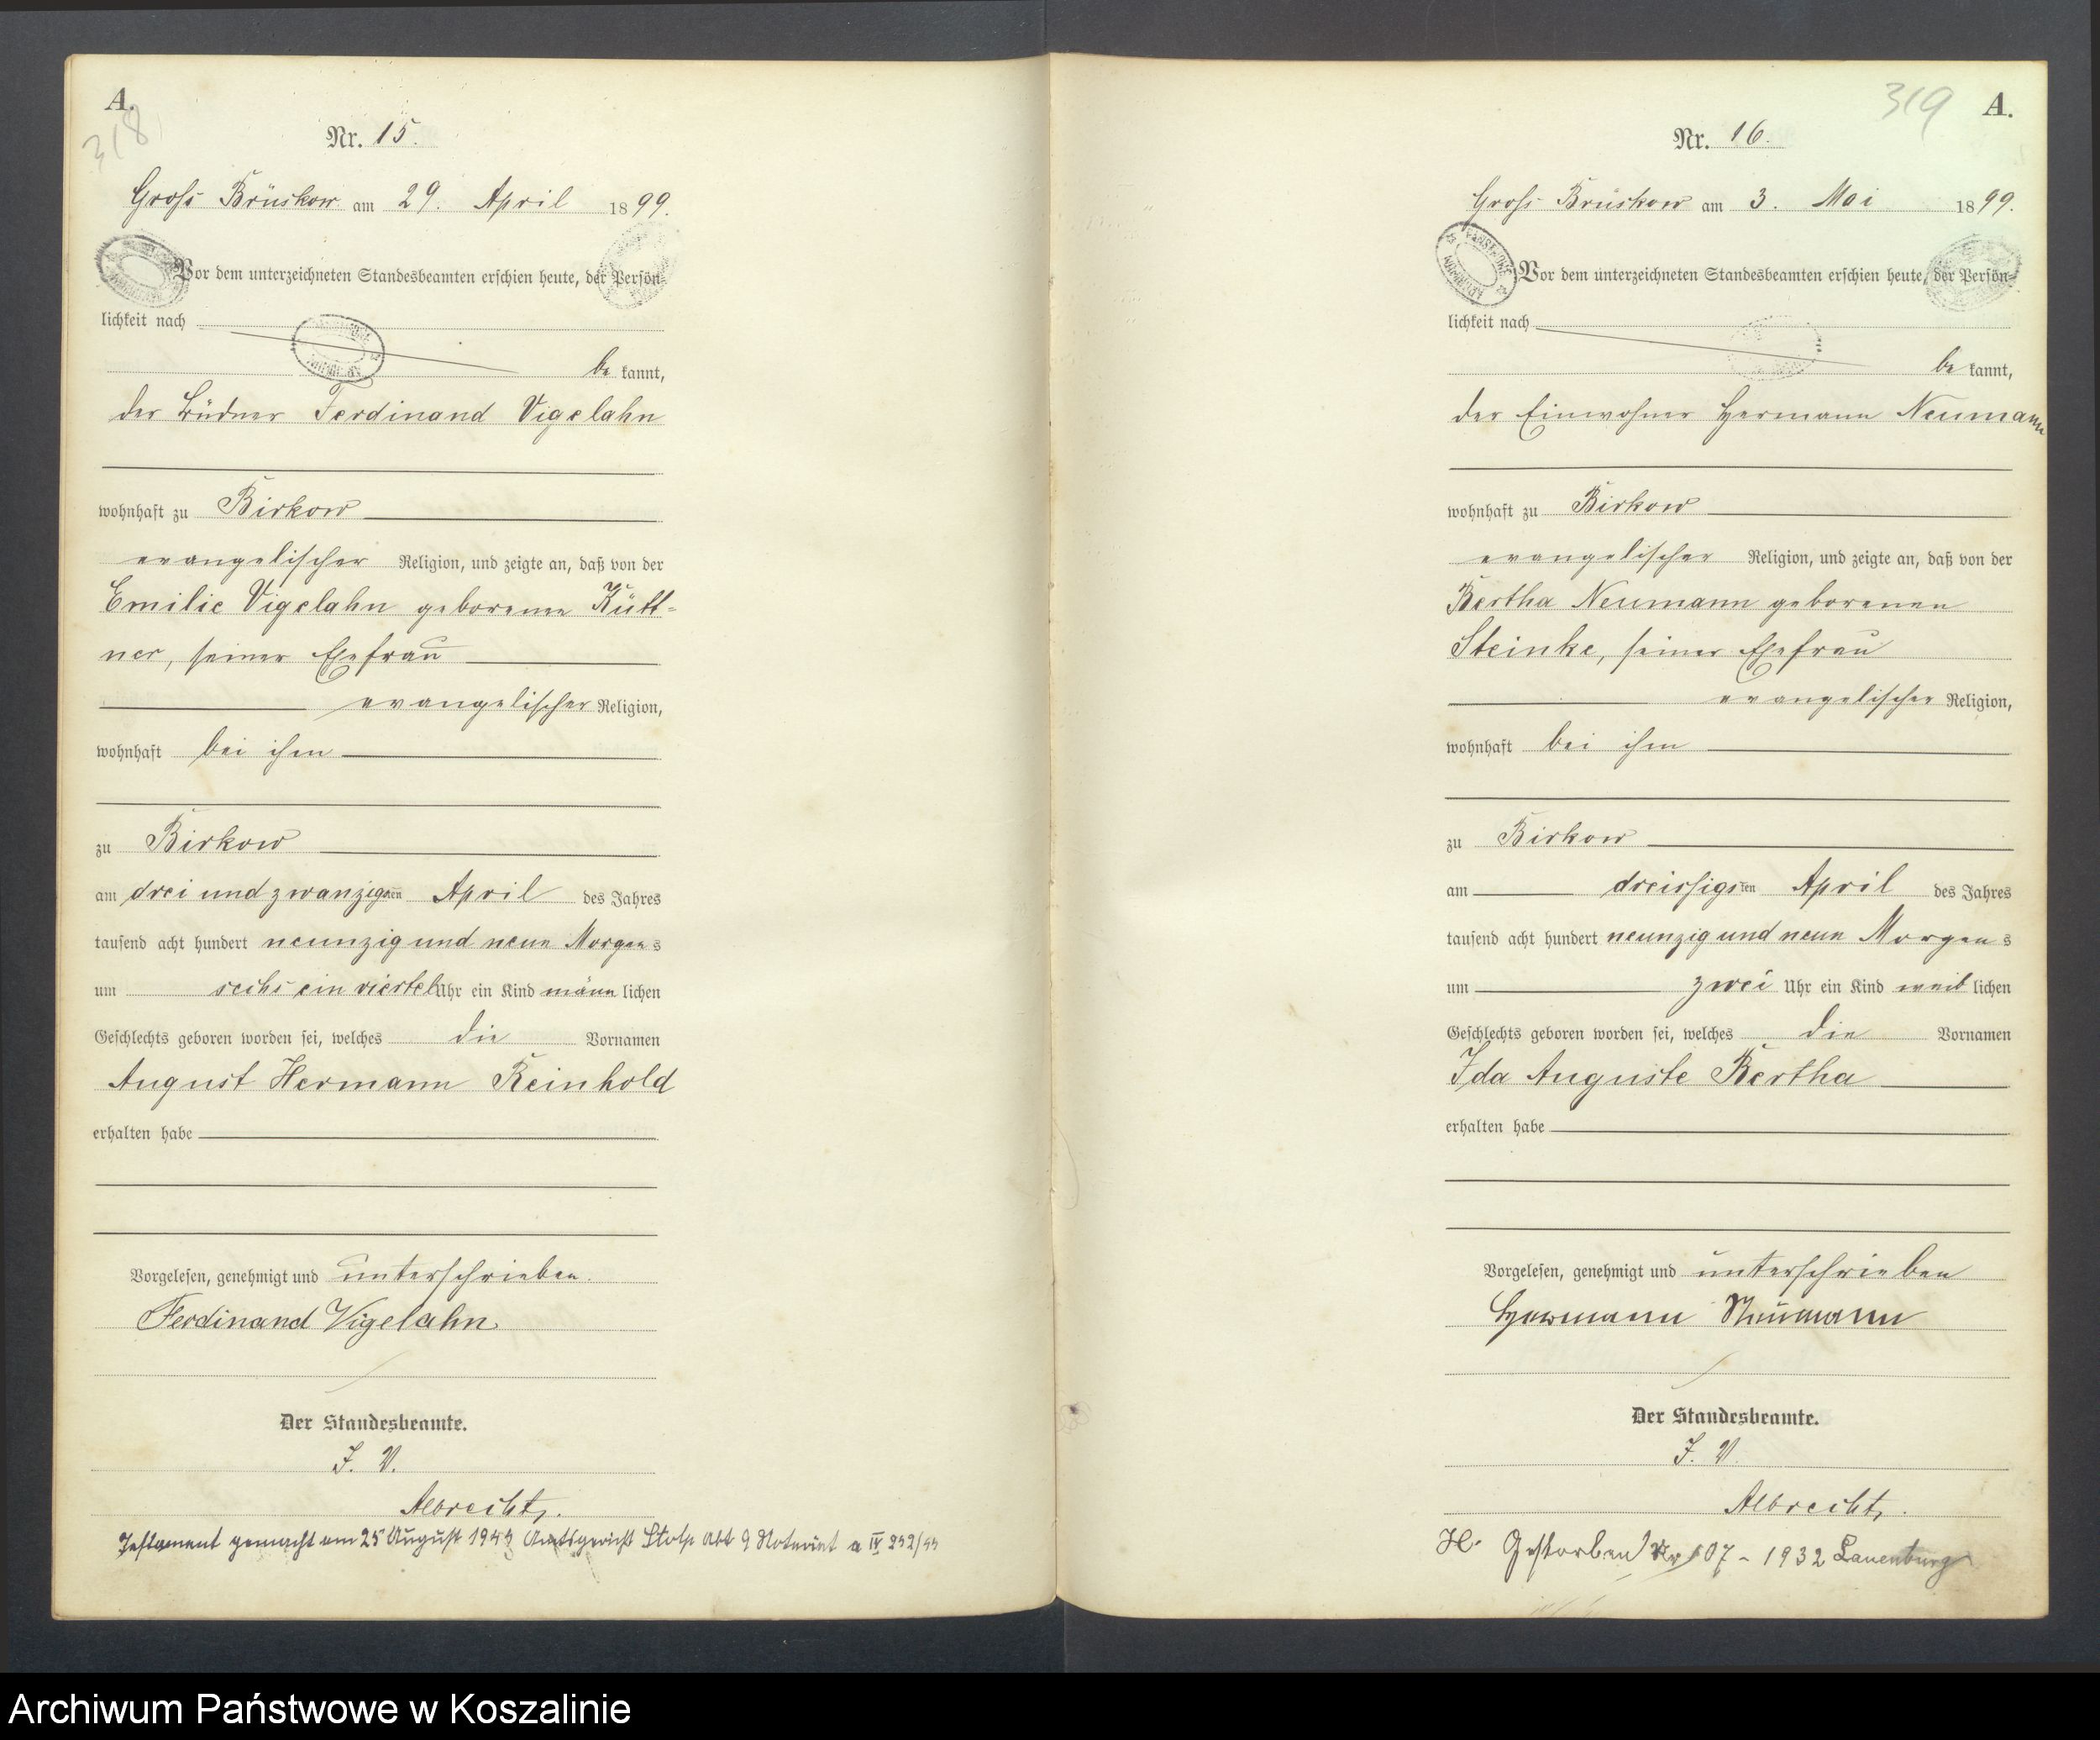 A.
318
Nr. 15.
Groß Brüskow am 29. April 1899.
Vor dem unterzeichneten Standesbeamten erschien heute, der Persön-
lichkeit nach
be kannt,
der Büdner Ferdinand Vigelahn
wohnhaft zu Birkow
evangelischer Religion, und zeigte an, daß von der
Emilie Vigelahn geborenen Kütt-
ner, seiner Ehefrau
evangelischer Religion,
wohnhaft bei ihm
zu Birkow
am drei und zwanzigsten April des Jahres
tausend acht hundert neunzig und neun Morgens
um sechs ein viertel Uhr ein Kind männlichen
Geschlechts geboren worden sei, welches die Vornamen
August Hermann Reinhold
erhalten habe
Vorgelesen, genehmigt und unterschrieben.
Ferdinand Vigelahn
Der Standesbeamte.
J. V.
Albrecht.
Testament gemacht am 25 August 1944 Amtsgericht Stolp Abt 9 Notariat a IV 242/44
319 A.
Nr. 16.
Groß Brüskow am 3. Mai 1899.
Vor dem unterzeichneten Standesbeamten erschien heute, der Persön-
lichkeit nach
be kannt,
der Einwohner Hermann Neumann
wohnhaft zu Birkow
evangelischer Religion, und zeigte an, daß von der
Bertha Neumann geborenen
Steinke, seiner Ehefrau
evangelischer Religion,
wohnhaft bei ihm
zu Birkow
am dreissigsten April des Jahres
tausend acht hundert neunzig und neun Morgens
um zwei Uhr ein Kind weiblichen
Geschlechts geboren worden sei, welches die Vornamen
Ida Auguste Bertha
erhalten habe
Vorgelesen, genehmigt und unterschrieben
Hermann Neumann
Der Standesbeamte.
J. V.
Albrecht.
H. Gestorben Nr 107 - 1932 Lauenburg
Archiwum Państwowe w Koszalinie